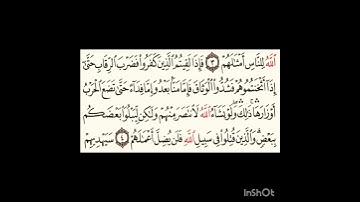 ٱللَّهُ لِلنَّاسِ أَمْثَٰلَهُمْ ٣ فَإِذَا لَقِيتُمُ ٱلَّذِينَ كَفَرُوا۟ فَضَرْبَ ٱلرِّقَابِ حَتَّىٰٓ
إِذَآ أَثْخَنتُمُوهُمْ فَشُدُّوا۟ ٱلْوَثَاقَ فَإِمَّا مَنًّۢا بَعْدُ وَإِمَّا فِدَآءً حَتَّىٰ تَضَعَ ٱلْحَرْبُ
أَوْزَارَهَا ۚ ذَٰلِكَ ۖ وَلَوْ يَشَآءُ ٱللَّهُ لَٱنتَصَرَ مِنْهُمْ وَلَٰكِن لِّيَبْلُوَا۟ بَعْضَكُم
بِبَعْضٍ ۗ وَٱلَّذِينَ قُتِلُوا۟ فِى سَبِيلِ ٱللَّهِ فَلَن يُضِلَّ أَعْمَٰلَهُمْ ٤ سَيَهْدِيهِمْ
InShOt